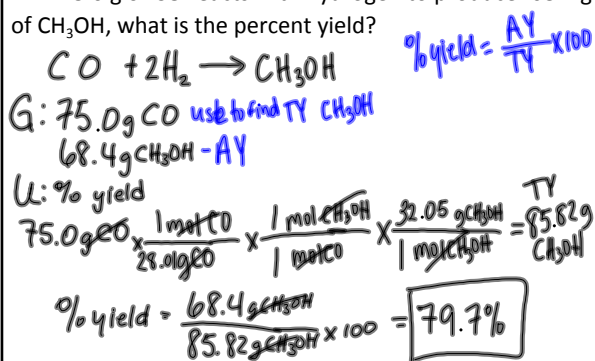 of CH₃OH, what is the percent yield?
% yield = AY/TY x100
CO + 2H₂ → CH₃OH
G: 75.0g CO use to find TY CH₃OH
68.4g CH₃OH - AY
U: % yield
75.0g CO x 1 mol CO/28.01g CO x 1 mol CH₃OH/1 mol CO x 32.05 g CH₃OH/1 mol CH₃OH = TY 85.82g CH₃OH
% yield = 68.4g CH₃OH/85.82g CH₃OH x 100 = 79.7%